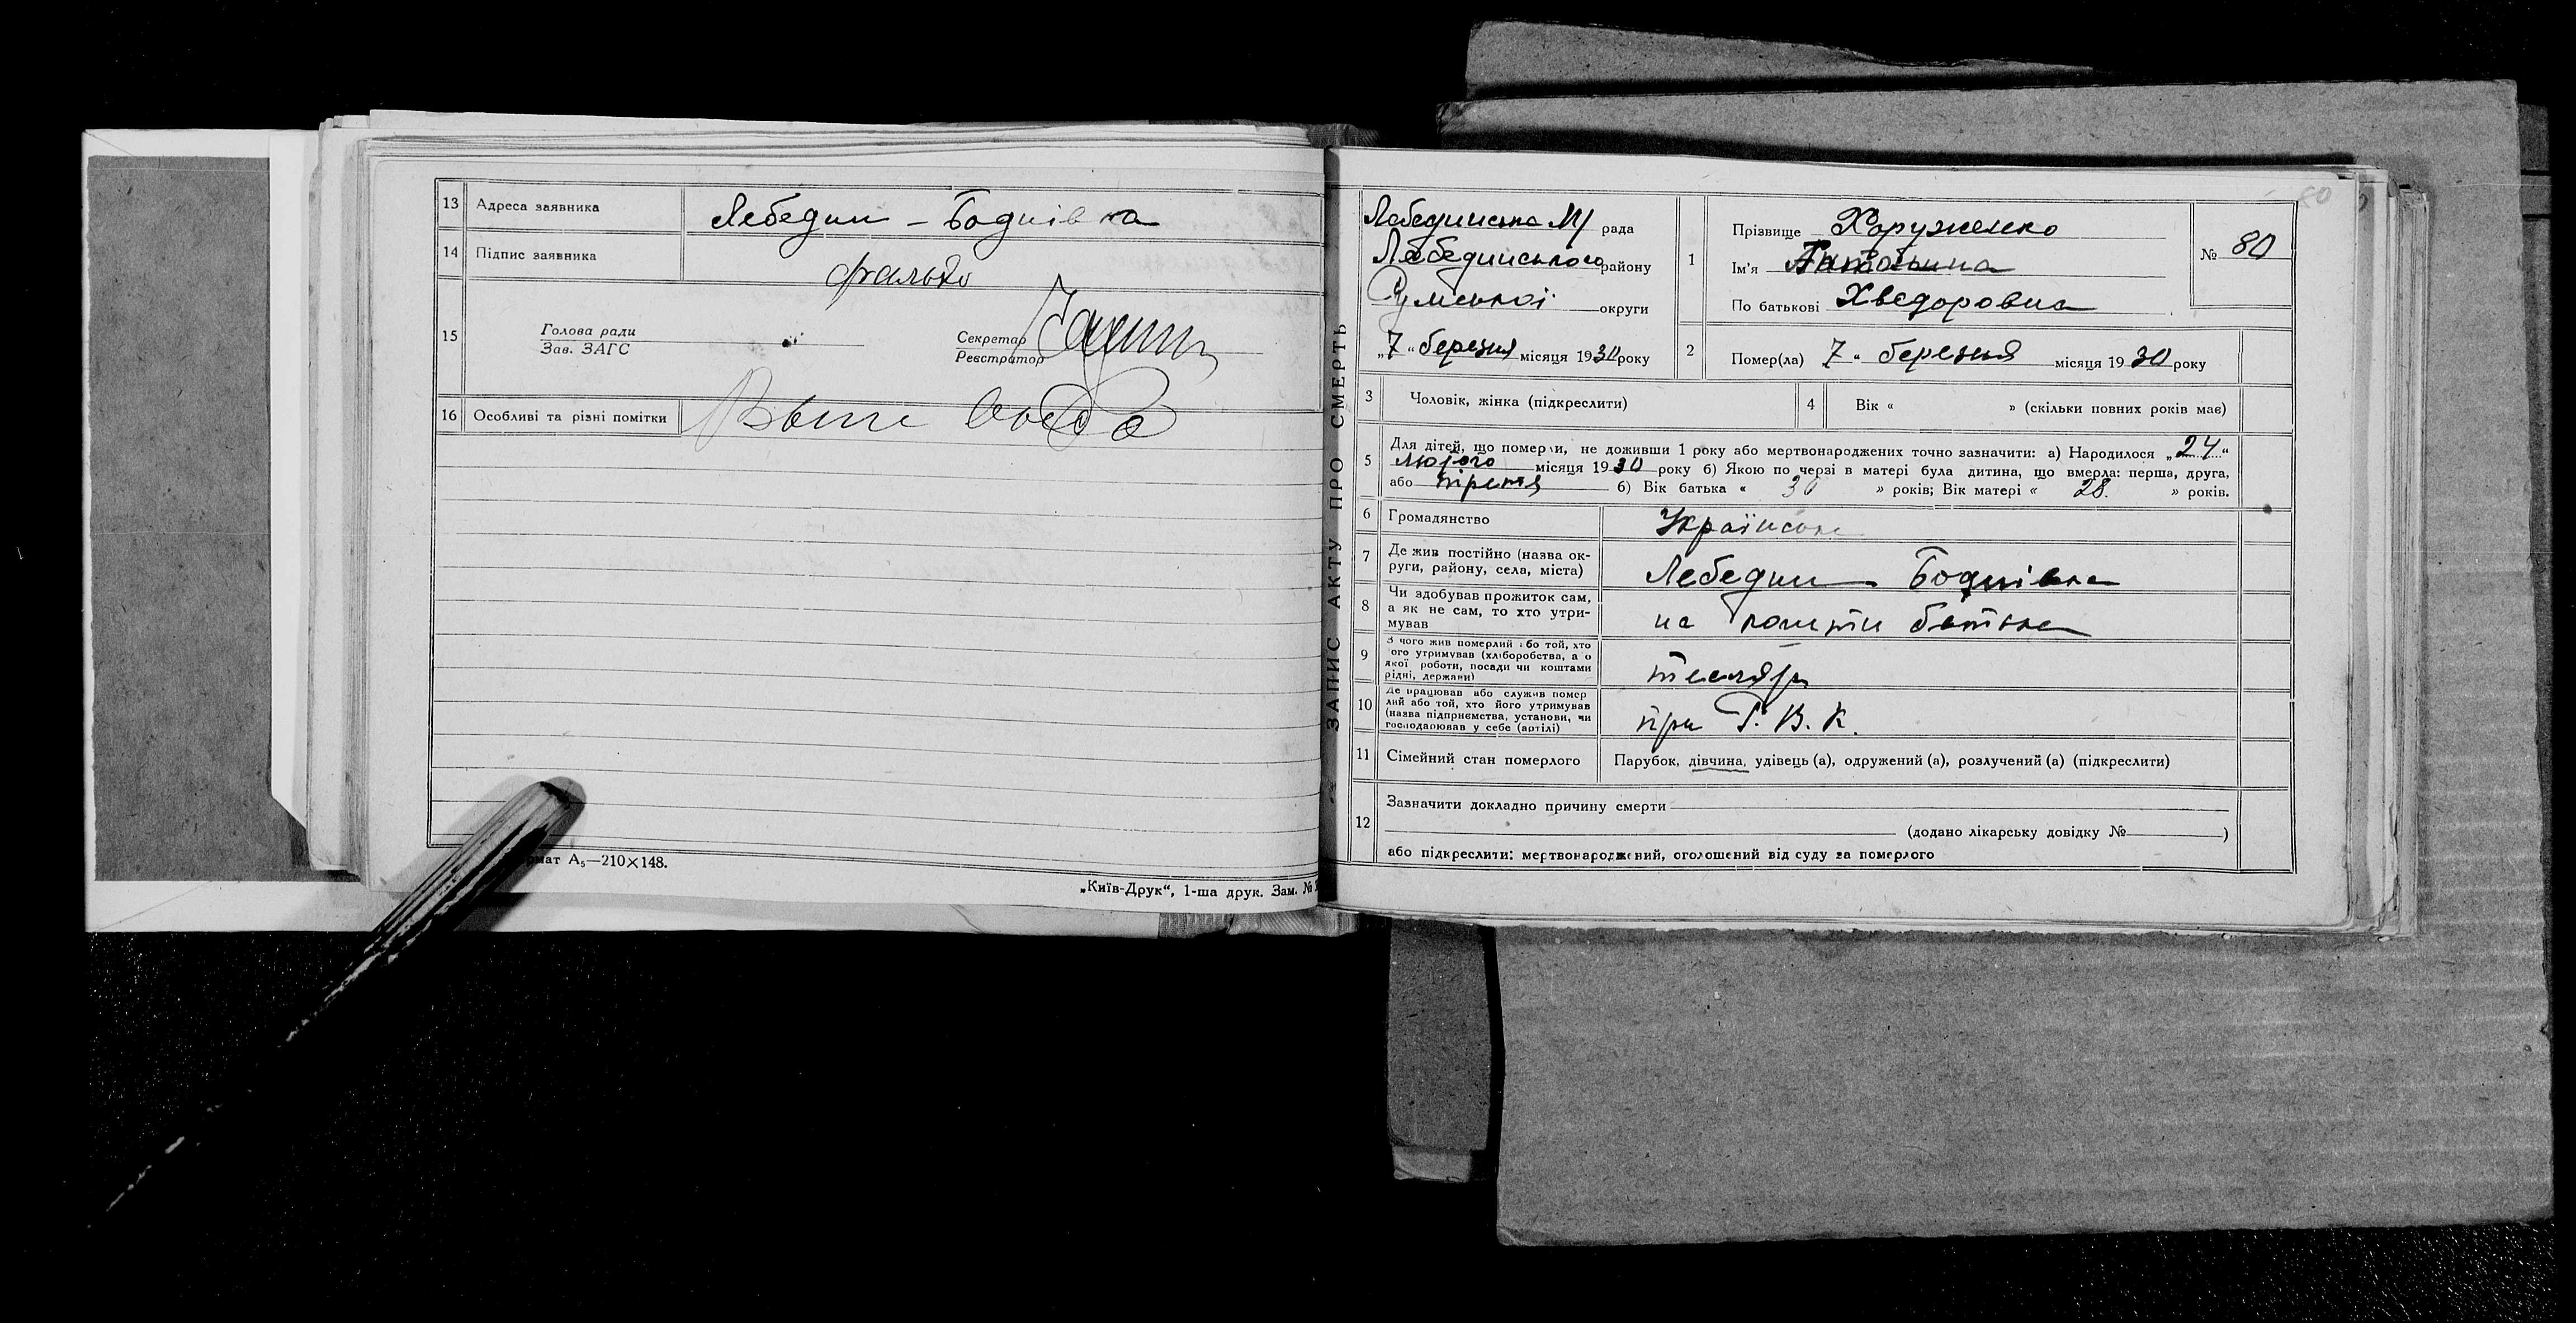 13 Адреса заявника Лебедин – Боднівка
14 Підпис заявника
15 Голова ради
Зав. ЗАГС
Секретар
Реєстратор
16 Особливі та різні помітки
Формат А5—210×148.
„Київ-Друк“, 1-ша друк. Зам. №
80
ЗАПИС АКТУ ПРО СМЕРТЬ
Лебединська М/ рада
Лебединського району
Сумської округи
„7“ березня місяця 1930 року
1 Прізвище Харуженко
Ім'я
По батькові Хведоровна
№ 80
2 Помер(ла) 7 “ березня місяця 1930 року
3 Чоловік, жінка (підкреслити)
4 Вік « » (скільки повних років має)
5 Для дітей, що померли, не доживши 1 року або мертвонароджених точно зазначити: а) Народилося „24“
лютого місяця 1930 року б) Якою по черзі в матері була дитина, що вмерла: перша, друга,
або третя б) Вік батька « 30 » років; Вік матері « 28 » років.
6 Громадянство Українське
7 Де жив постійно (назва ок-
руги, району, села, міста) Лебедин Боднівка
8 Чи здобував прожиток сам,
а як не сам, то хто утри-
мував на кошти батька
9 З чого жив померлий або той, хто
його утримував (хліборобства, а о
якої роботи, посади чи коштами
рідні, держави) тесляр
10 Де працював або служив помер
лий або той, хто його утримував
(назва підприємства, установи, чи
господарював у себе (артілі) при Г. В. К.
11 Сімейний стан померлого Парубок, дівчина, удівець (а), одружений (а), розлучений (а) (підкреслити)
12 Зазначити докладно причину смерти
(додано лікарську довідку № )
або підкреслити: мертвонароджений, оголошений від суду за померлого